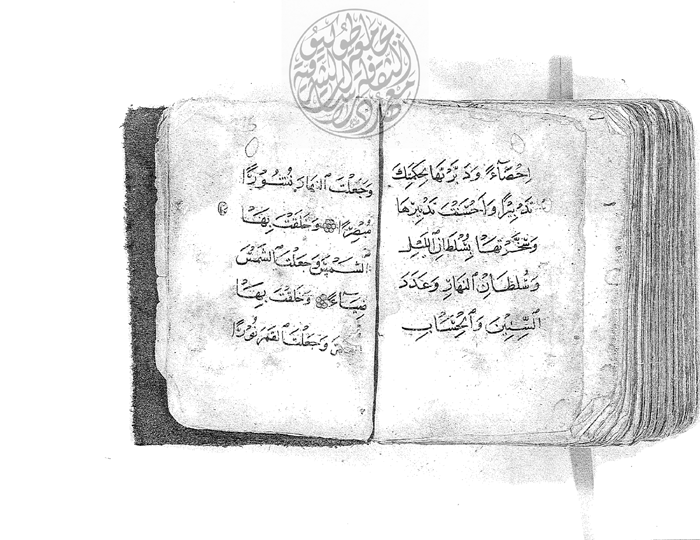 اِحْصَآءً وَدَبَّرْتَهَا بِحِكْمَتِكَ
تَدْبِيْرًا وَاَحْسَنْتَ تَدْبِيْرَهَا
وَسَخَّرْتَهَا بِسُلْطَانِ اللَّيْلِ
وَسُلْطَانِ النَّهَارِ وَعَدَدَ
السِّنِيْنَ وَالْحِسَابِ
وَجَعَلْتَ النَّهَارَ نُشُوْرًا
مُبْصِرًا وَخَلَقْتَ بِهَا
الشَّمْسَ وَجَعَلْتَ الشَّمْسَ
ضِيَآءً وَخَلَقْتَ بِهَا
وَجَعَلْتَ الْقَمَرَ نُوْرًا